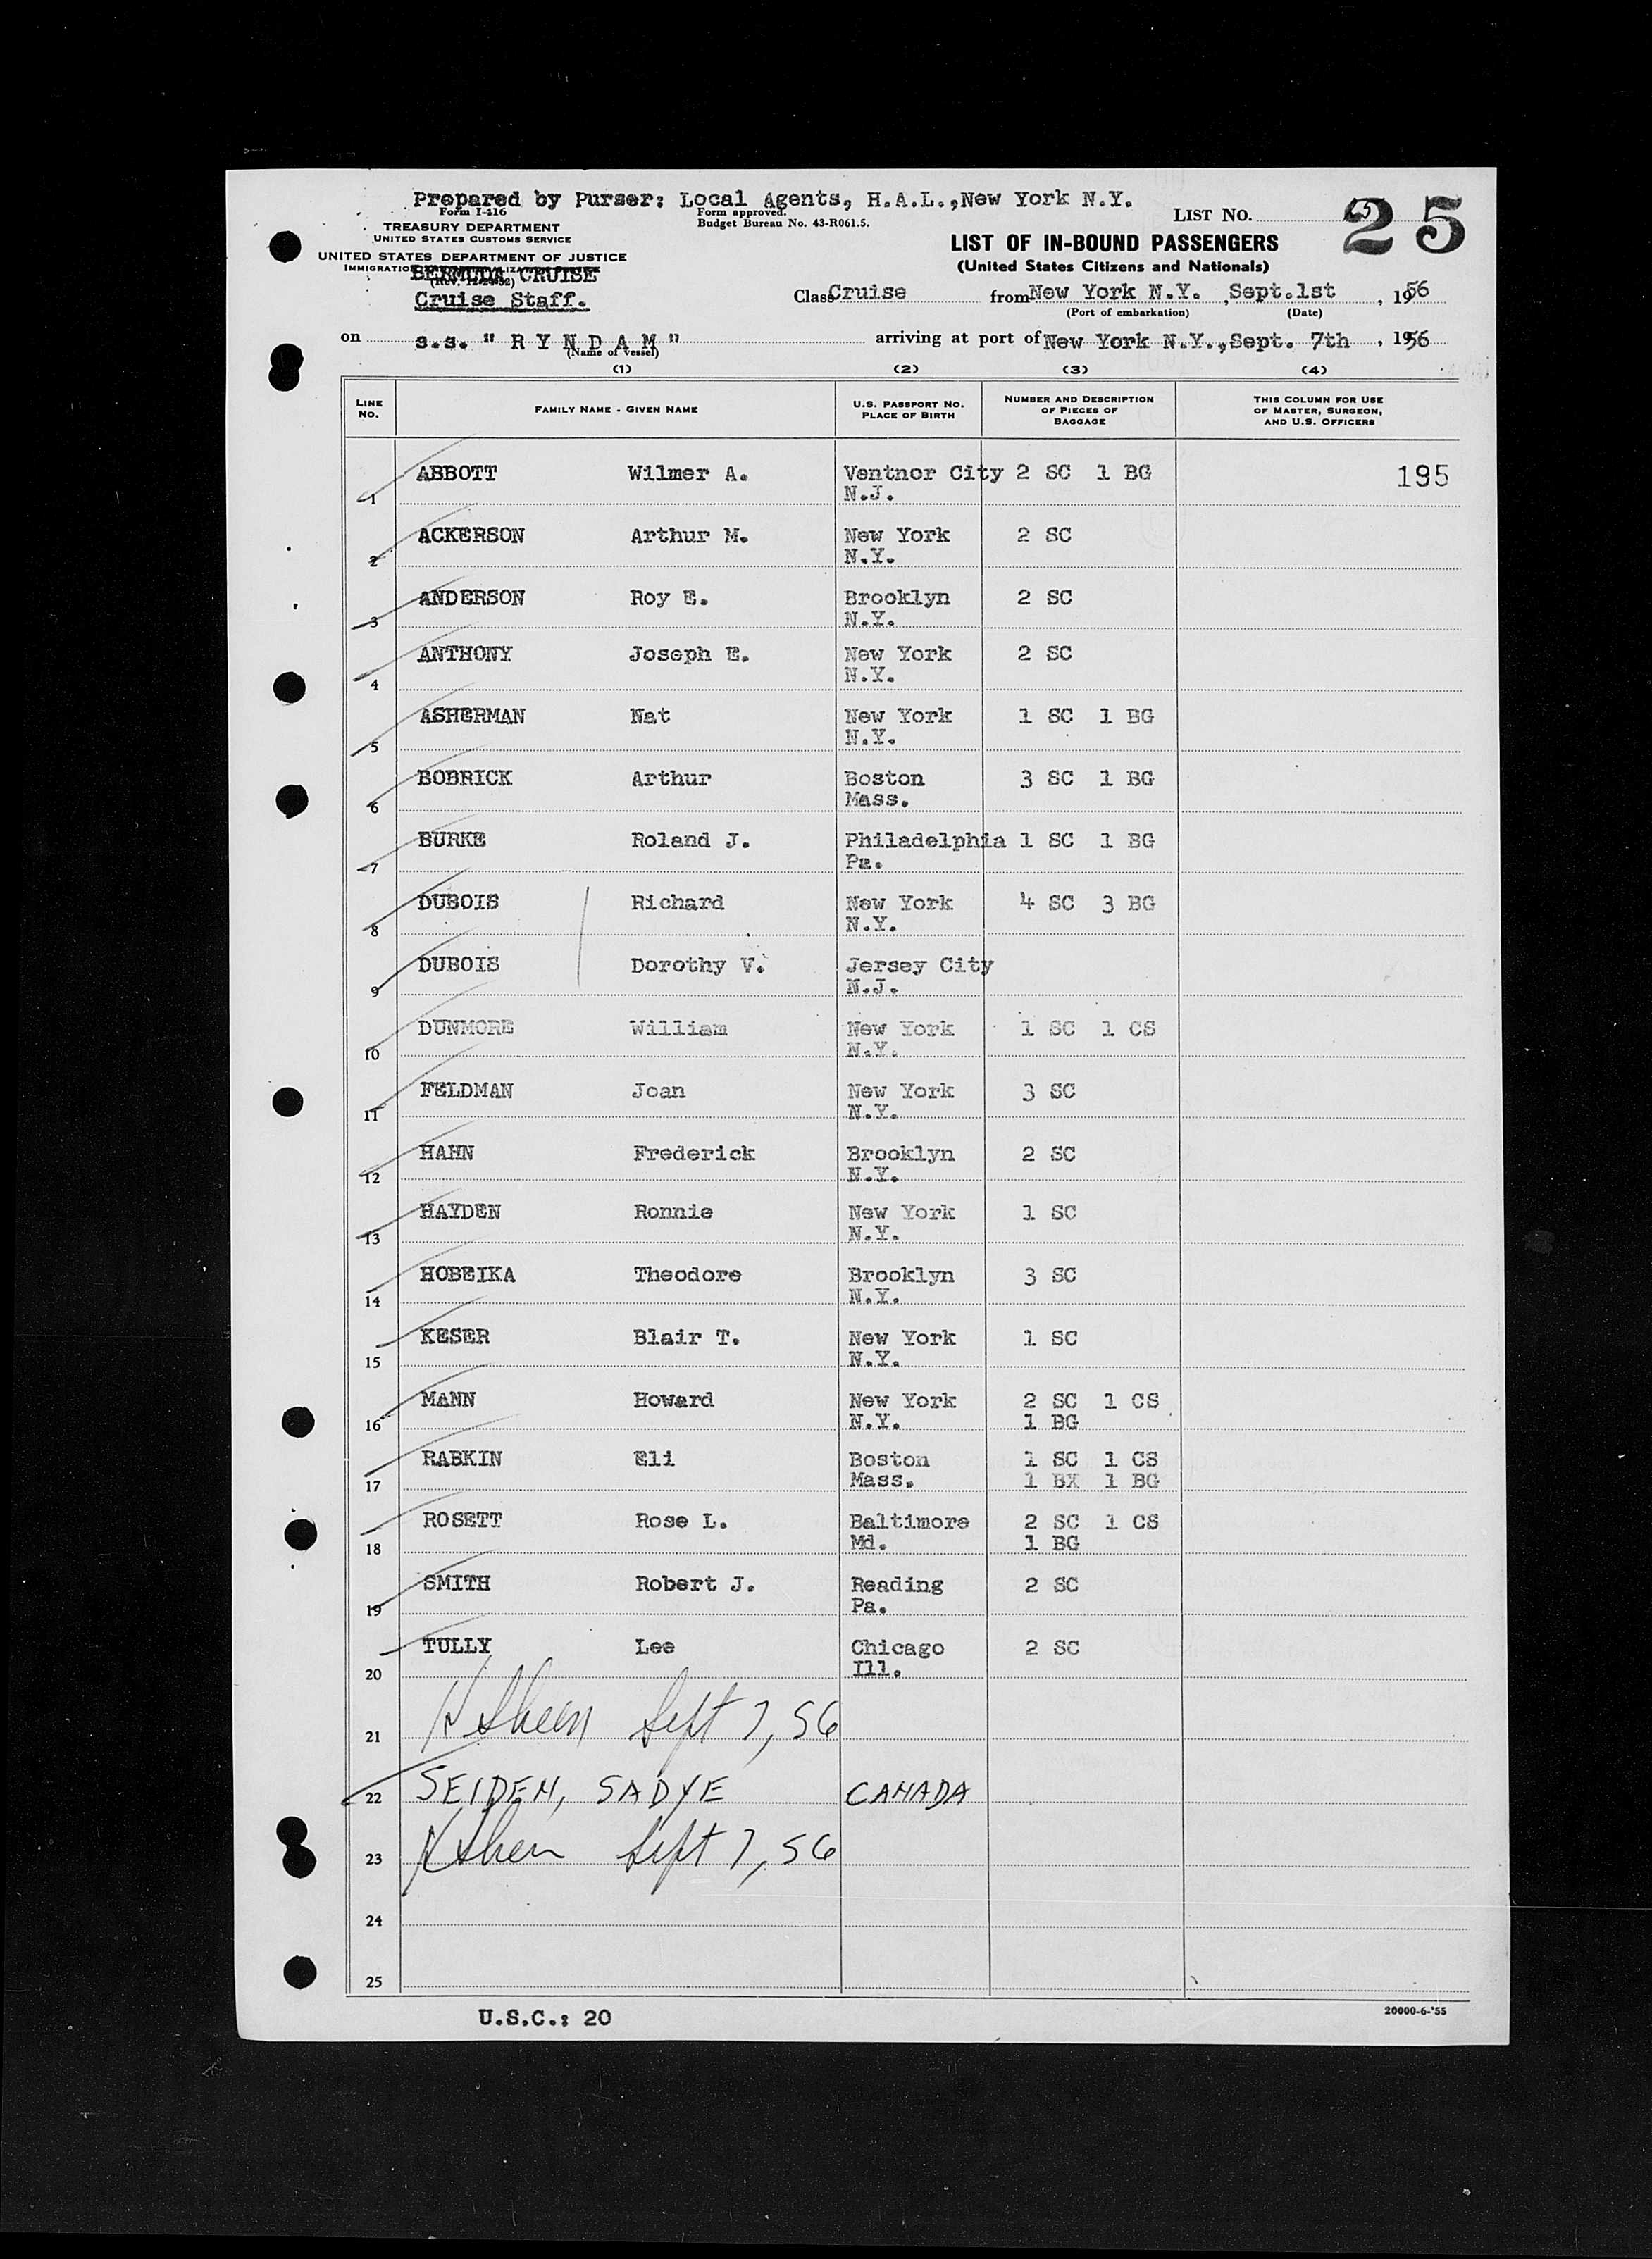 Prepared by Purser: Local Agents, H.A.L.,New York N.Y.
Form I-416
TREASURY DEPARTMENT
UNITED STATES CUSTOMS SERVICE
UNITED STATES DEPARTMENT OF JUSTICE
Form approved.
Budget Bureau No. 43-R061.5.
LIST NO. 25
LIST OF IN-BOUND PASSENGERS
(United States Citizens and Nationals)
BERMUDA CRUISE
Cruise Staff.
Class Cruise from New York N.Y. , Sept.1st , 1956
(Port of embarkation) (Date)
on s.s. " R Y N D A M " arriving at port of New York N.Y., Sept. 7th , 1956
(Name of vessel)
(1) (2) (3) (4)
LINE NO. FAMILY NAME - GIVEN NAME U.S. PASSPORT NO. PLACE OF BIRTH NUMBER AND DESCRIPTION OF PIECES OF BAGGAGE THIS COLUMN FOR USE OF MASTER, SURGEON, AND U.S. OFFICERS
1 ABBOTT Wilmer A. Ventnor City N.J. 2 SC 1 BG 195
2 ACKERSON Arthur M. New York N.Y. 2 SC
3 ANDERSON Roy E. Brooklyn N.Y. 2 SC
4 ANTHONY Joseph E. New York N.Y. 2 SC
5 ASHERMAN Nat New York N.Y. 1 SC 1 BG
6 BOBRICK Arthur Boston Mass. 3 SC 1 BG
7 BURKE Roland J. Philadelphia Pa. 1 SC 1 BG
8 DUBOIS Richard New York N.Y. 4 SC 3 BG
9 DUBOIS Dorothy V. Jersey City N.J.
10 DUNMORE William New York N.Y. 1 SC 1 CS
11 FELDMAN Joan New York N.Y. 3 SC
12 HAHN Frederick Brooklyn N.Y. 2 SC
13 HAYDEN Ronnie New York N.Y. 1 SC
14 HOBEIKA Theodore Brooklyn N.Y. 3 SC
15 KESER Blair T. New York N.Y. 1 SC
16 MANN Howard New York N.Y. 2 SC 1 CS 1 BG
17 RABKIN Eli Boston Mass. 1 SC 1 CS 1 BX 1 BG
18 ROSETT Rose L. Baltimore Md. 2 SC 1 CS 1 BG
19 SMITH Robert J. Reading Pa. 2 SC
20 TULLY Lee Chicago Ill. 2 SC
21 Sept 7, 56
22 SEIDEN, SADYE CANADA
23 Sept 7, 56
24
25
U.S.C.: 20
20000-6-'55